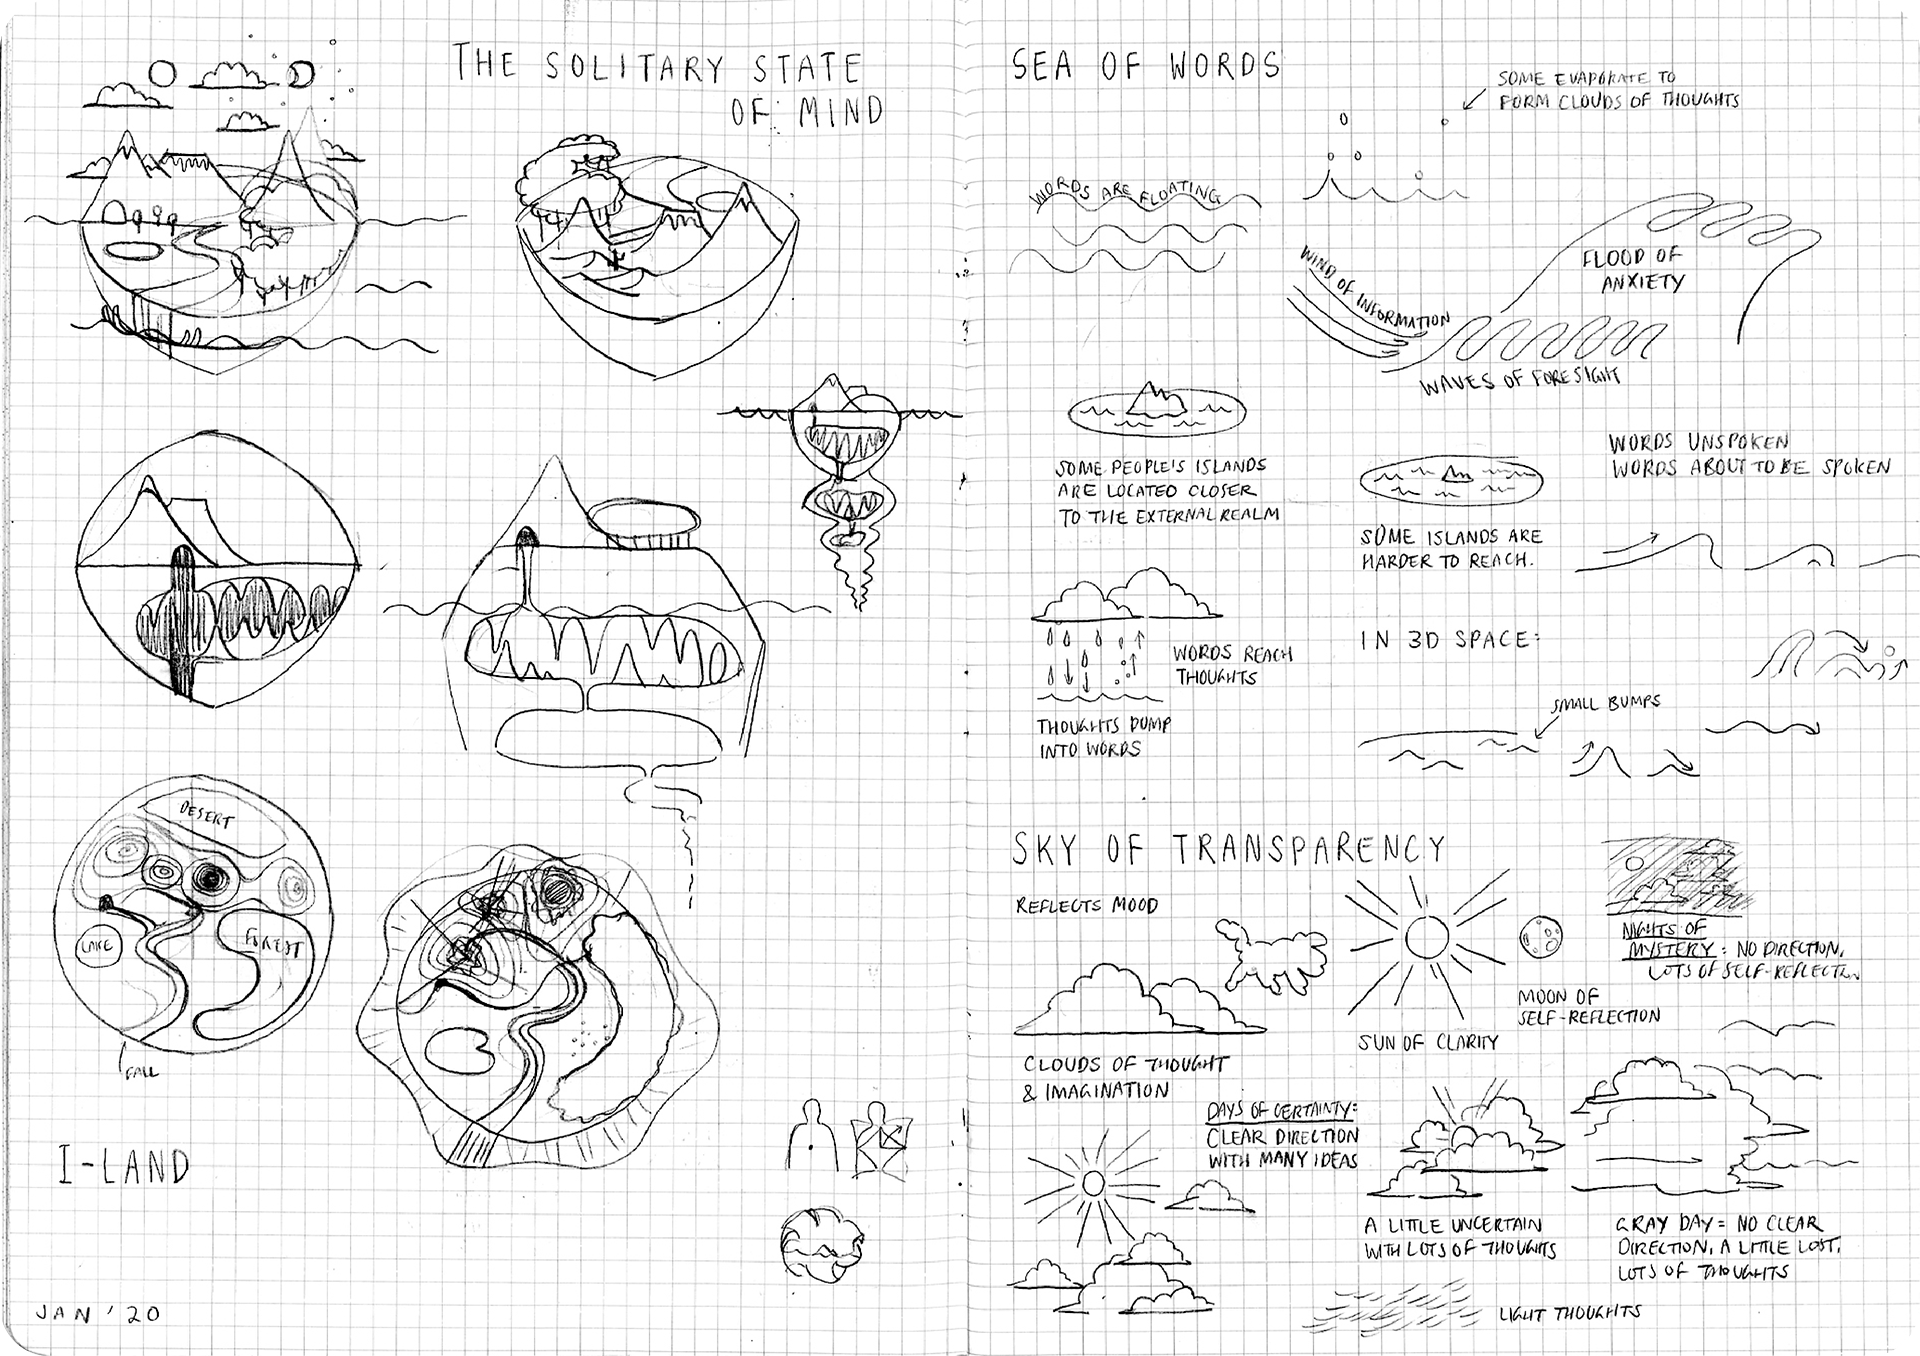 THE SOLITARY STATE
OF MIND
DESERT
LAKE
FOREST
FALL
I-LAND
JAN '20
SEA OF WORDS
SOME EVAPORATE TO
FORM CLOUDS OF THOUGHTS
WORDS ARE FLOATING
WIND OF INFORMATION
FLOOD OF
ANXIETY
WAVES OF FORESIGHT
SOME PEOPLE'S ISLANDS
ARE LOCATED CLOSER
TO THE EXTERNAL REALM
WORDS UNSPOKEN
WORDS ABOUT TO BE SPOKEN
SOME ISLANDS ARE
HARDER TO REACH.
WORDS REACH
THOUGHTS
THOUGHTS DUMP
INTO WORDS
IN 3D SPACE:
SMALL BUMPS
SKY OF TRANSPARENCY
REFLECTS MOOD
CLOUDS OF THOUGHT
& IMAGINATION
SUN OF CLARITY
MOON OF
SELF-REFLECTION
NIGHTS OF
MYSTERY: NO DIRECTION,
LOTS OF SELF-REFLECTN.
DAYS OF CERTAINTY:
CLEAR DIRECTION
WITH MANY IDEAS
A LITTLE UNCERTAIN
WITH LOTS OF THOUGHTS
GRAY DAY = NO CLEAR
DIRECTION, A LITTLE LOST,
LOTS OF THOUGHTS
LIGHT THOUGHTS